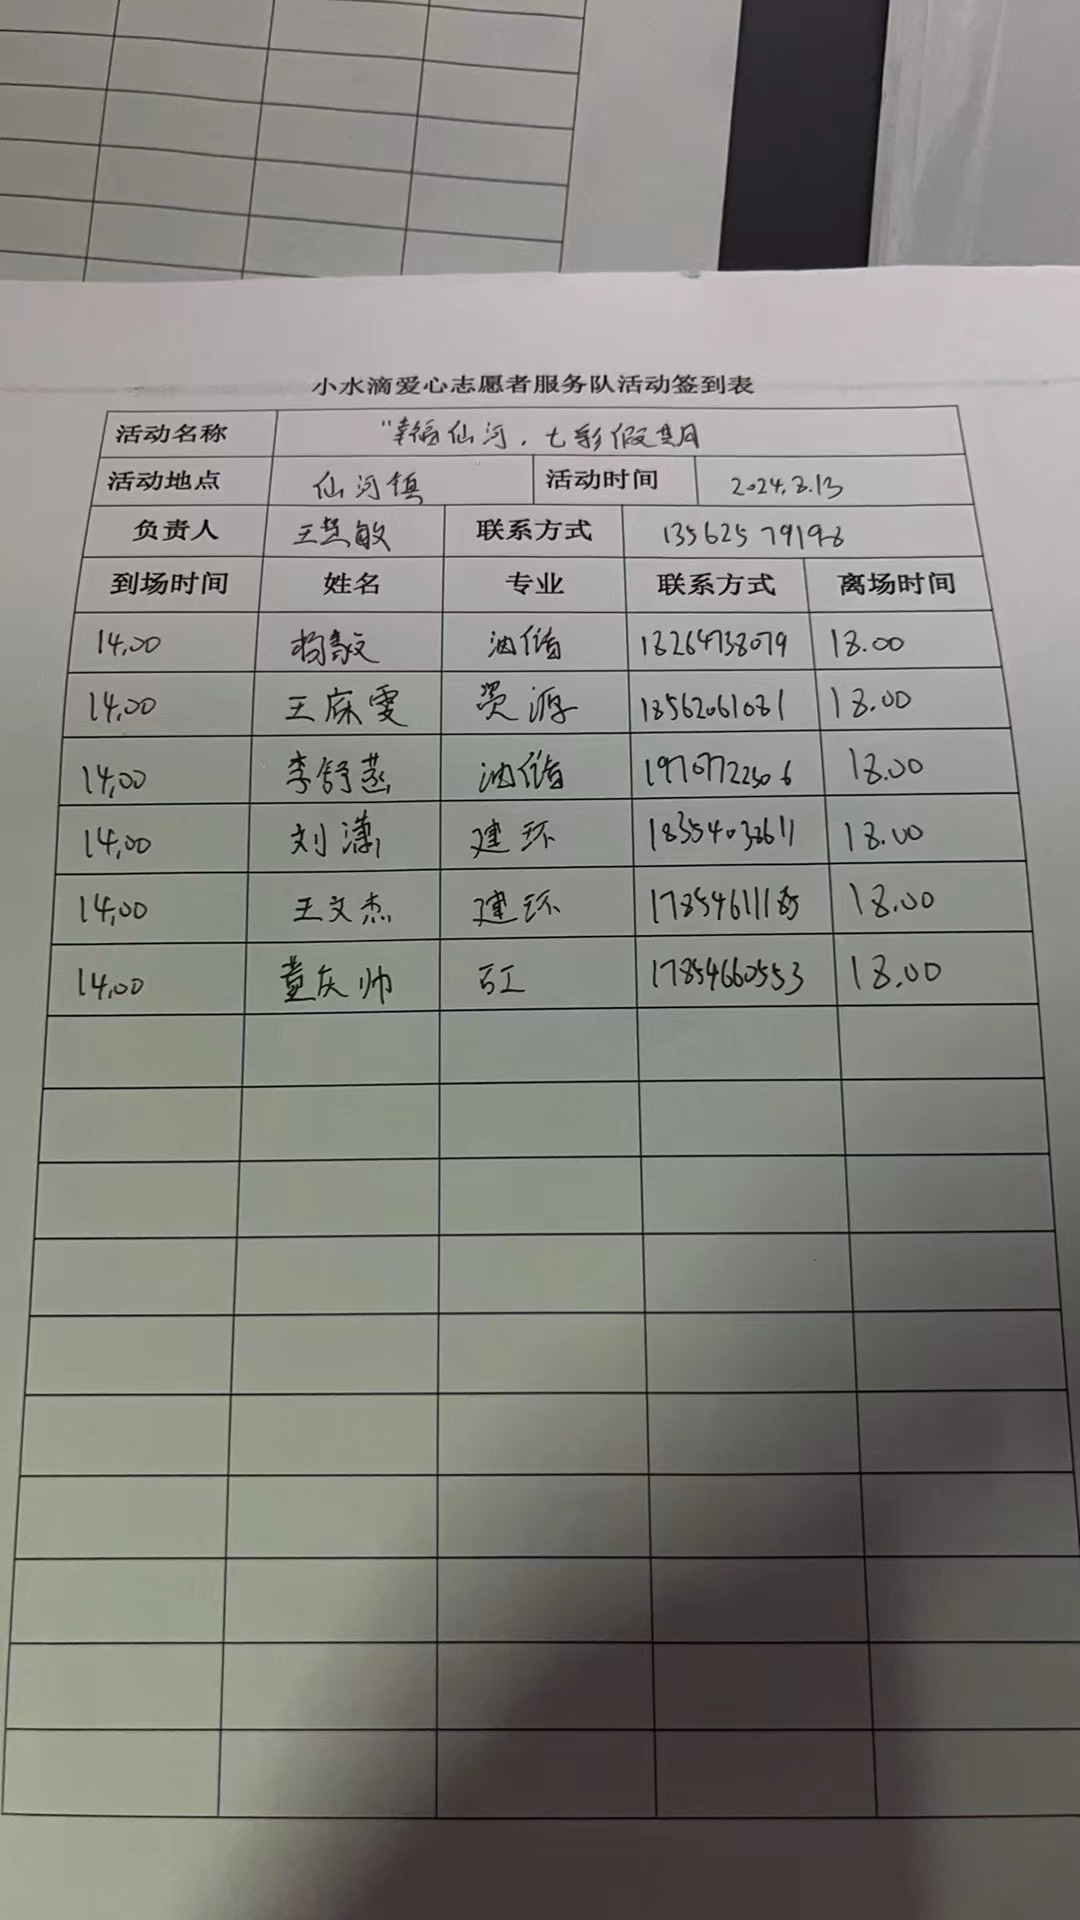 小水滴爱心志愿者服务队活动签到表
活动名称 "幸福仙河，七彩假期
活动地点 仙河镇 活动时间 2024.8.13
负责人 王慧敏 联系方式 13562579198
到场时间 姓名 专业 联系方式 离场时间
14.00 杨敏 油储 18264738079 18.00
14.00 资源 18562061081 18.00
14.00 李舒蕊 油储 18.00
14.00 刘潇 建环 18354038611 18.00
14.00 王文杰 建环 17854611185 18.00
14.00 董庆帅 石工 17854660553 18.00